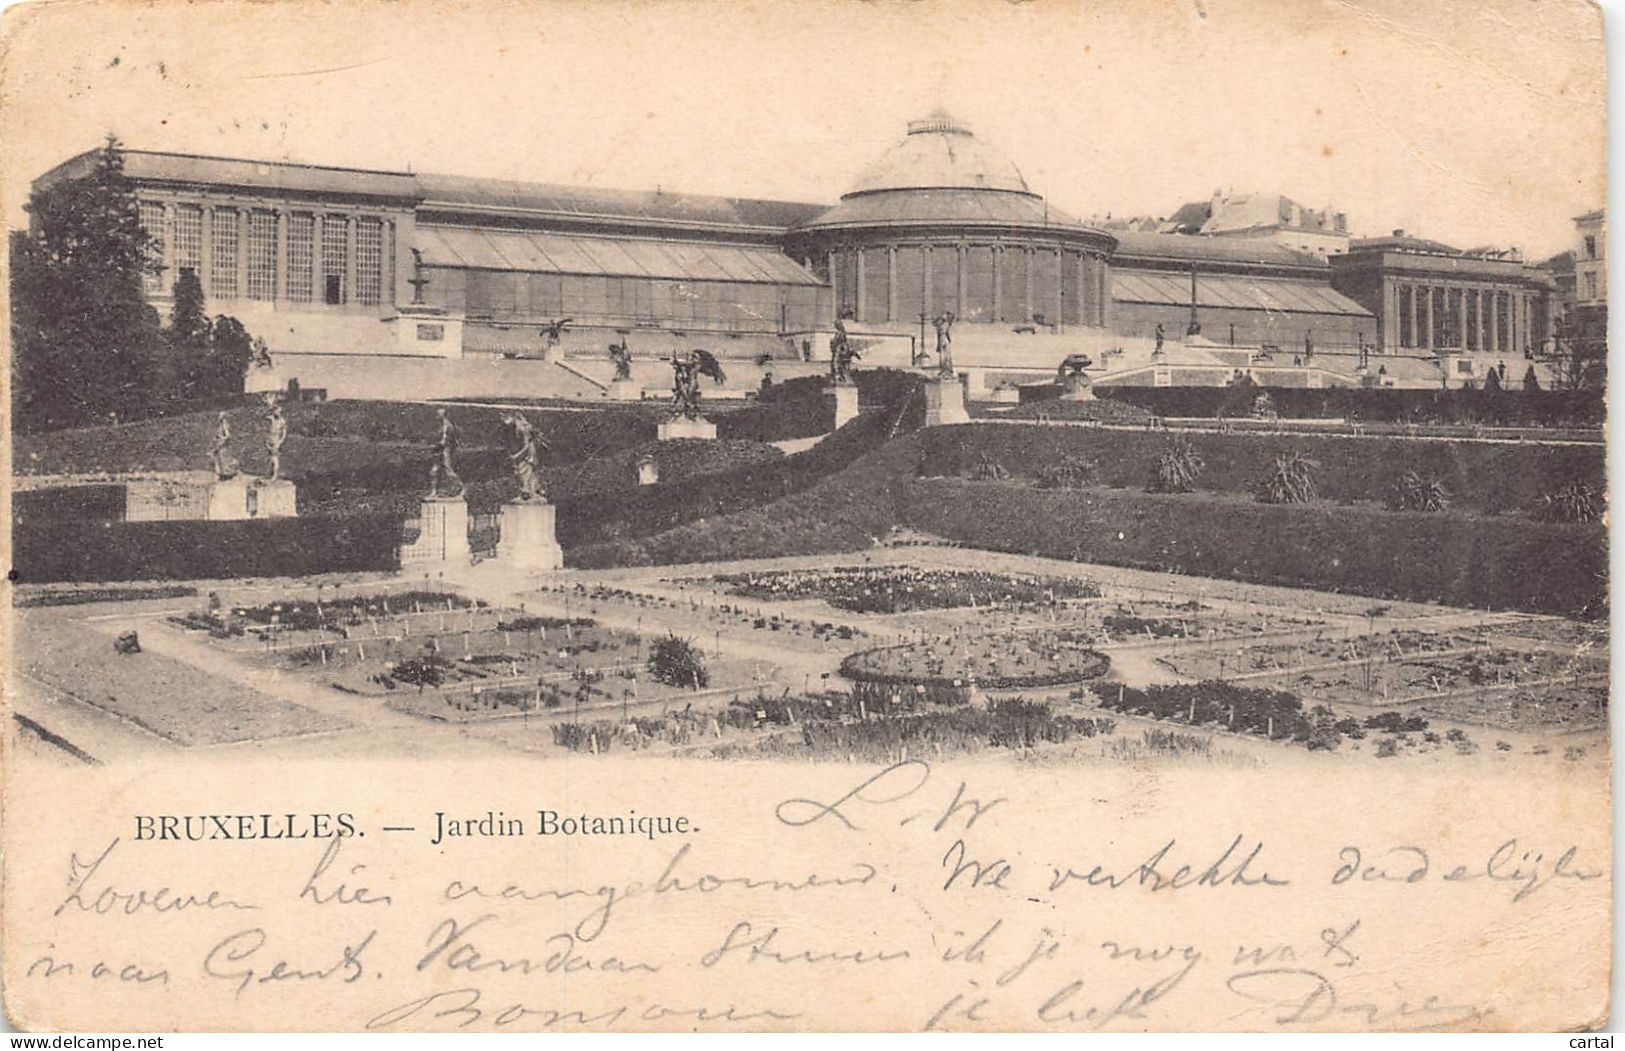 BRUXELLES. — Jardin Botanique.
L. W.
Zoeven hier aangekomen. We vertrekken dadelijk
naar Gent. Vandaar stuur ik je nog wat.
Bonjour je liefh
delcampe.net
cartal